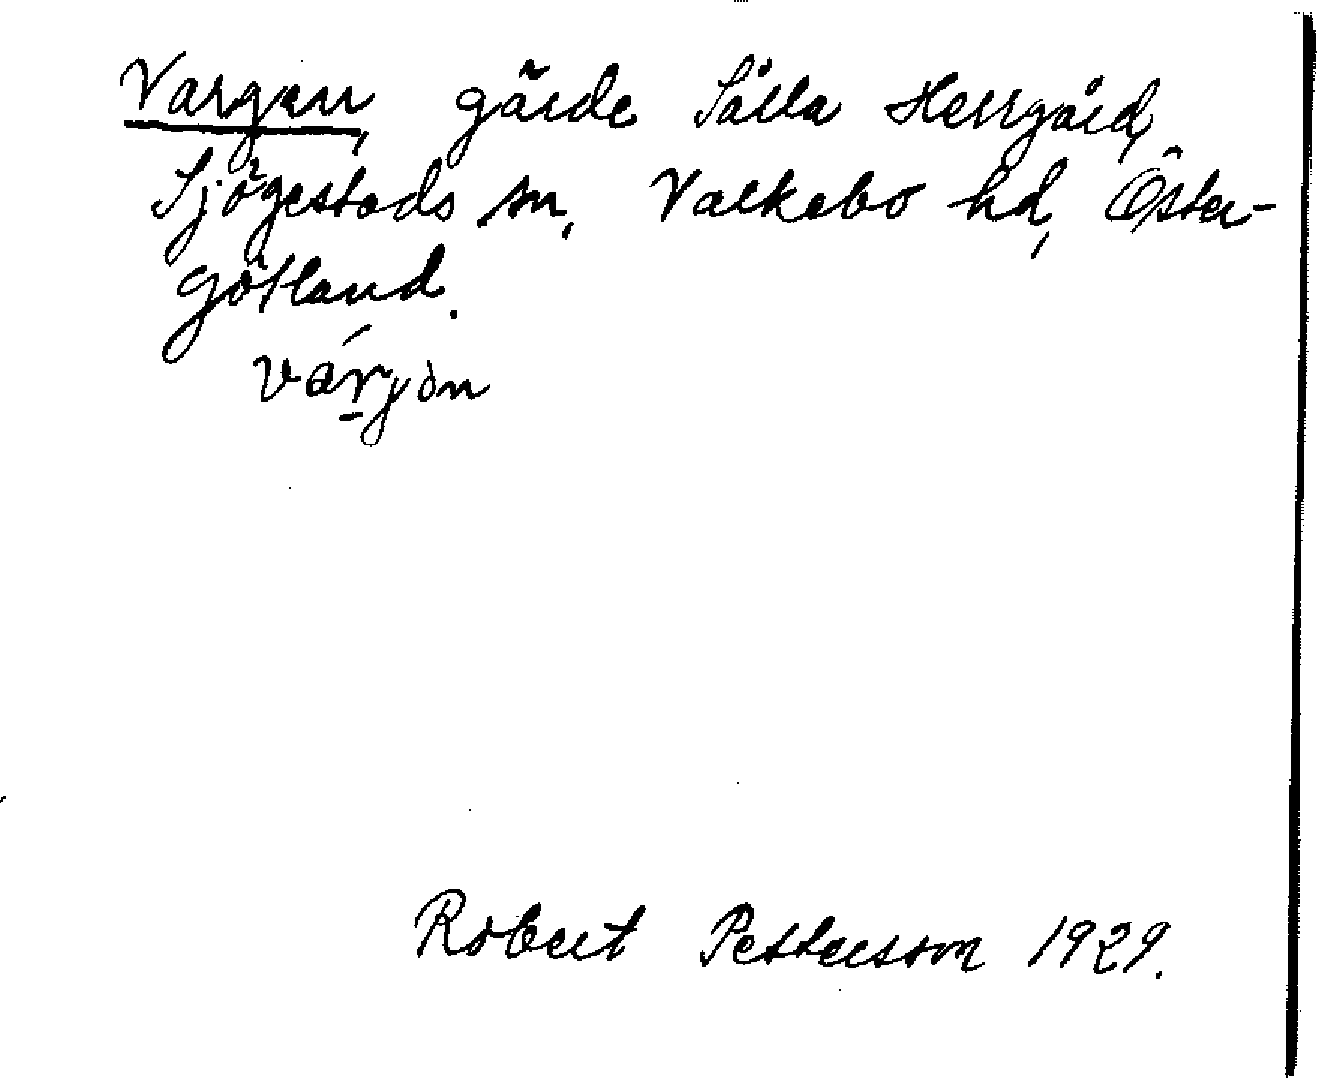 Vargen, gärde Sålla Herrgård,
Sjögestads sn, Valkebo hd, Öster-
götland.
várjən
Robert Pettersson 1929.